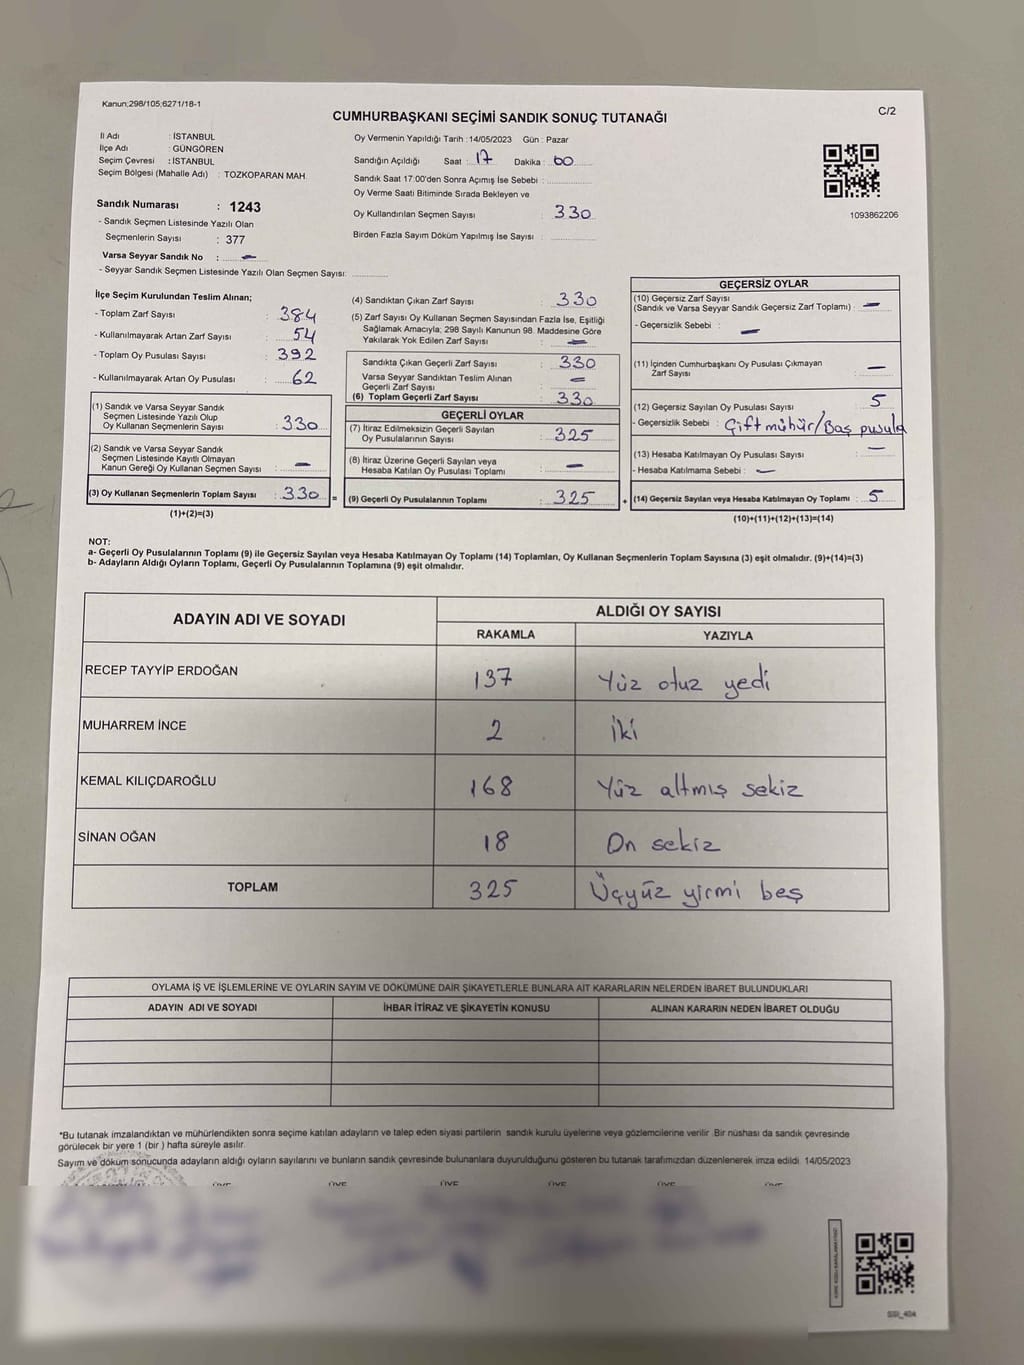 Kanun;298/105;6271/18-1
CUMHURBAŞKANI SEÇİMİ SANDIK SONUÇ TUTANAĞI
C/2
İl Adı : İSTANBUL
İlçe Adı : GÜNGÖREN
Seçim Çevresi : İSTANBUL
Seçim Bölgesi (Mahalle Adı) : TOZKOPARAN MAH.
Oy Vermenin Yapıldığı Tarih :14/05/2023 Gün : Pazar
Sandığın Açıldığı Saat : 17 Dakika : 00
Sandık Saat 17:00'den Sonra Açımış İse Sebebi :
Oy Verme Saati Bitiminde Sırada Bekleyen ve
Oy Kullandırılan Seçmen Sayısı : 330
Birden Fazla Sayım Döküm Yapılmış İse Sayısı :
1093862206
Sandık Numarası : 1243
- Sandık Seçmen Listesinde Yazılı Olan
Seçmenlerin Sayısı : 377
Varsa Seyyar Sandık No : —
- Seyyar Sandık Seçmen Listesinde Yazılı Olan Seçmen Sayısı:
İlçe Seçim Kurulundan Teslim Alınan;
- Toplam Zarf Sayısı : 384
- Kullanılmayarak Artan Zarf Sayısı : 54
- Toplam Oy Pusulası Sayısı : 392
- Kullanılmayarak Artan Oy Pusulası : 62
(1) Sandık ve Varsa Seyyar Sandık
Seçmen Listesinde Yazılı Olup
Oy Kullanan Seçmenlerin Sayısı : 330
(2) Sandık ve Varsa Seyyar Sandık
Seçmen Listesinde Kayıtlı Olmayan
Kanun Gereği Oy Kullanan Seçmen Sayısı : —
(3) Oy Kullanan Seçmenlerin Toplam Sayısı : 330 =
(1)+(2)=(3)
(4) Sandıktan Çıkan Zarf Sayısı : 330
(5) Zarf Sayısı Oy Kullanan Seçmen Sayısından Fazla İse, Eşitliği
Sağlamak Amacıyla; 298 Sayılı Kanunun 98. Maddesine Göre
Yakılarak Yok Edilen Zarf Sayısı : —
Sandıkta Çıkan Geçerli Zarf Sayısı : 330
Varsa Seyyar Sandıktan Teslim Alınan
Geçerli Zarf Sayısı : —
(6) Toplam Geçerli Zarf Sayısı : 330
GEÇERLİ OYLAR
(7) İtiraz Edilmeksizin Geçerli Sayılan
Oy Pusulalarının Sayısı : 325
(8) İtiraz Üzerine Geçerli Sayılan veya
Hesaba Katılan Oy Pusulası Toplamı : —
(9) Geçerli Oy Pusulalarının Toplamı : 325 +
GEÇERSİZ OYLAR
(10) Geçersiz Zarf Sayısı
(Sandık ve Varsa Seyyar Sandık Geçersiz Zarf Toplamı) : —
- Geçersizlik Sebebi : —
(11) İçinden Cumhurbaşkanı Oy Pusulası Çıkmayan
Zarf Sayısı : —
(12) Geçersiz Sayılan Oy Pusulası Sayısı : 5
- Geçersizlik Sebebi : Çift mühür/Baş pusula
(13) Hesaba Katılmayan Oy Pusulası Sayısı : —
- Hesaba Katılmama Sebebi : —
(14) Geçersiz Sayılan veya Hesaba Katılmayan Oy Toplamı : 5
(10)+(11)+(12)+(13)=(14)
NOT:
a- Geçerli Oy Pusulalarının Toplamı (9) ile Geçersiz Sayılan veya Hesaba Katılmayan Oy Toplamı (14) Toplamları, Oy Kullanan Seçmenlerin Toplam Sayısına (3) eşit olmalıdır. (9)+(14)=(3)
b- Adayların Aldığı Oyların Toplamı, Geçerli Oy Pusulalarının Toplamına (9) eşit olmalıdır.
ADAYIN ADI VE SOYADI ALDIĞI OY SAYISI
RAKAMLA YAZIYLA
RECEP TAYYİP ERDOĞAN 137 Yüz otuz yedi
MUHARREM İNCE 2 İki
KEMAL KILIÇDAROĞLU 168 Yüz altmış sekiz
SİNAN OĞAN 18 On sekiz
TOPLAM 325 Üçyüz yirmi beş
OYLAMA İŞ VE İŞLEMLERİNE VE OYLARIN SAYIM VE DÖKÜMÜNE DAİR ŞİKAYETLERLE BUNLARA AİT KARARLARIN NELERDEN İBARET BULUNDUKLARI
ADAYIN ADI VE SOYADI İHBAR İTİRAZ VE ŞİKAYETİN KONUSU ALINAN KARARIN NEDEN İBARET OLDUĞU
*Bu tutanak imzalandıktan ve mühürlendikten sonra seçime katılan adayların ve talep eden siyasi partilerin sandık kurulu üyelerine veya gözlemcilerine verilir. Bir nüshası da sandık çevresinde
görülecek bir yere 1 (bir ) hafta süreyle asılır.
Sayım ve döküm sonucunda adayların aldığı oyların sayılarını ve bunların sandık çevresinde bulunanlara duyurulduğunu gösteren bu tutanak tarafımızdan düzenlenerek imza edildi. 14/05/2023
ÜYE ÜYE ÜYE ÜYE ÜYE ÜYE